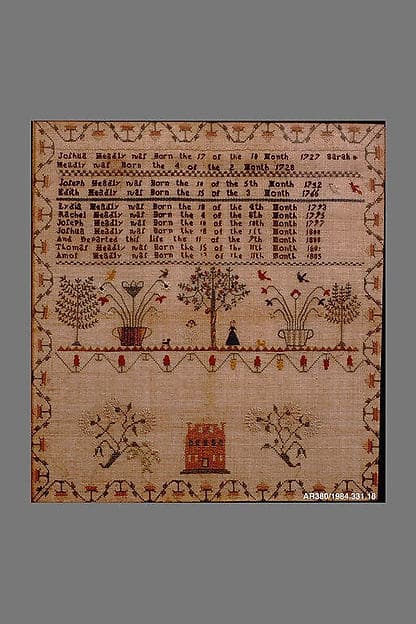 Joshua Headly was Born the 17 of the 10 Month 1727 Sarah
Headly was Born the 4 of the 2 Month 1728
Joseph Headly was Born the 10 of the 5th Month 1752
Edith Headly was Born the 15 of the 3 Month 1766
Lydia Headly was Born the 18 of the 4th Month 1793
Rachel Headly was Born the 4 of the 8th Month 1795
Joseph Headly was Born the 10 of the 10th Month 1797
Joshua Headly was Born the 18 of the 11th Month
And Departed this life the 11 of the 7th Month
Thomas Headly was Born the of the Month
Amos Headly was Born the of the 11th Month 1805
AR380/1984.331.18